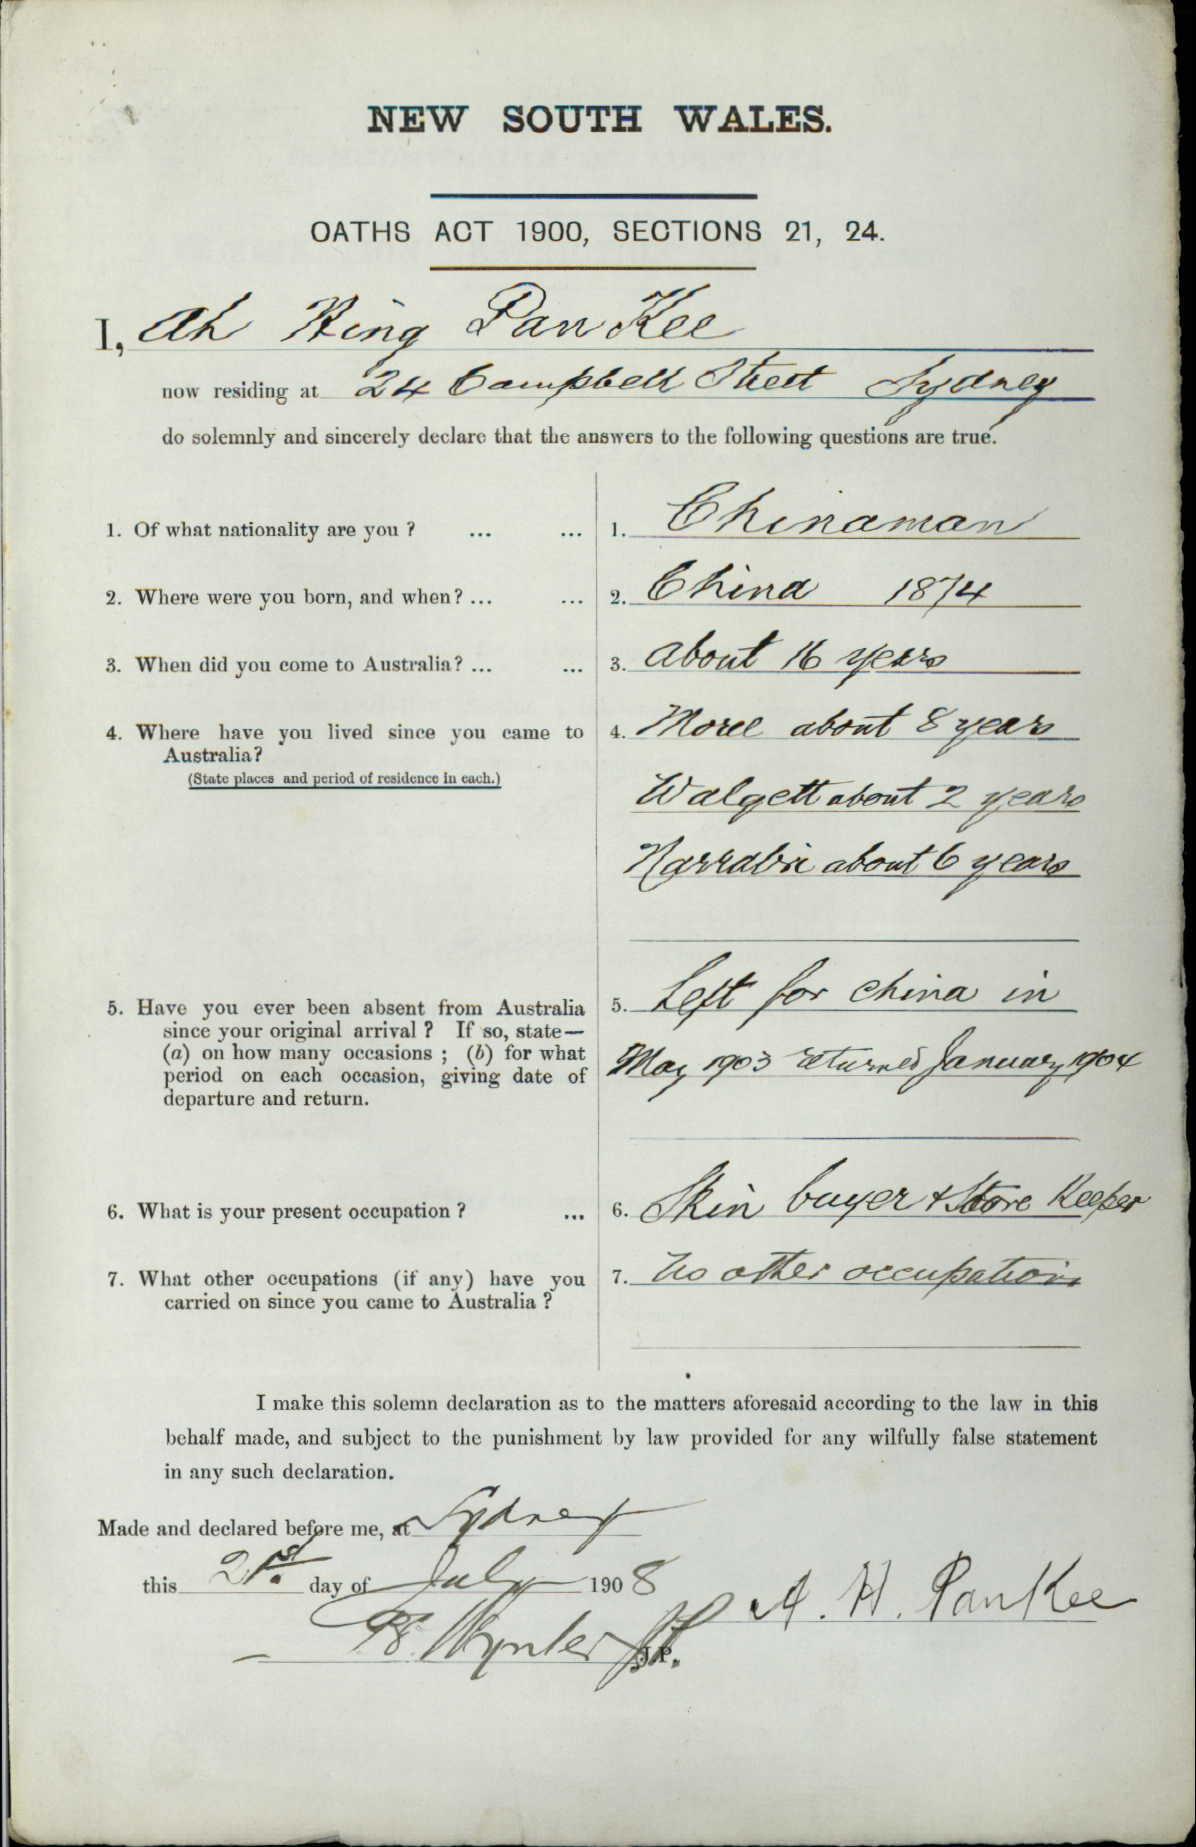 NEW SOUTH WALES.
OATHS ACT 1900, SECTIONS 21, 24.
I, Ah Hing Pan Kee
now residing at 24 Campbell Street Sydney
do solemnly and sincerely declare that the answers to the following questions are true.
1. Of what nationality are you ? ... ... 1. Chinaman
2. Where were you born, and when? ... ... 2. China 1874
3. When did you come to Australia? ... ... 3. about 16 years
4. Where have you lived since you came to 4. Moree about 8 years
Australia?
(State places and period of residence in each.)
Walgett about 2 years
Narrabri about 6 years
5. Have you ever been absent from Australia 5. Left for china in
since your original arrival ? If so, state—
(a) on how many occasions ; (b) for what May 1903 returned January 1904
period on each occasion, giving date of
departure and return.
6. What is your present occupation ? ... 6. Skin buyer & Store Keeper
7. What other occupations (if any) have you 7. No other occupation
carried on since you came to Australia ?
I make this solemn declaration as to the matters aforesaid according to the law in this
behalf made, and subject to the punishment by law provided for any wilfully false statement
in any such declaration.
Made and declared before me, at Sydney
this 21st day of July 1908
A. H. Pan Kee
J.P.